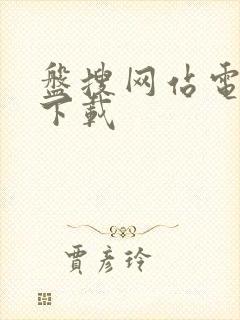 盤搜网佔電
下載
賈彦玲